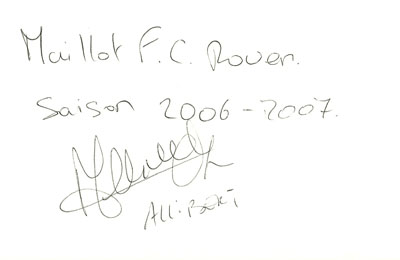 Maillot F.C. Rouen.
Saison 2006-2007.
ALLiBERT